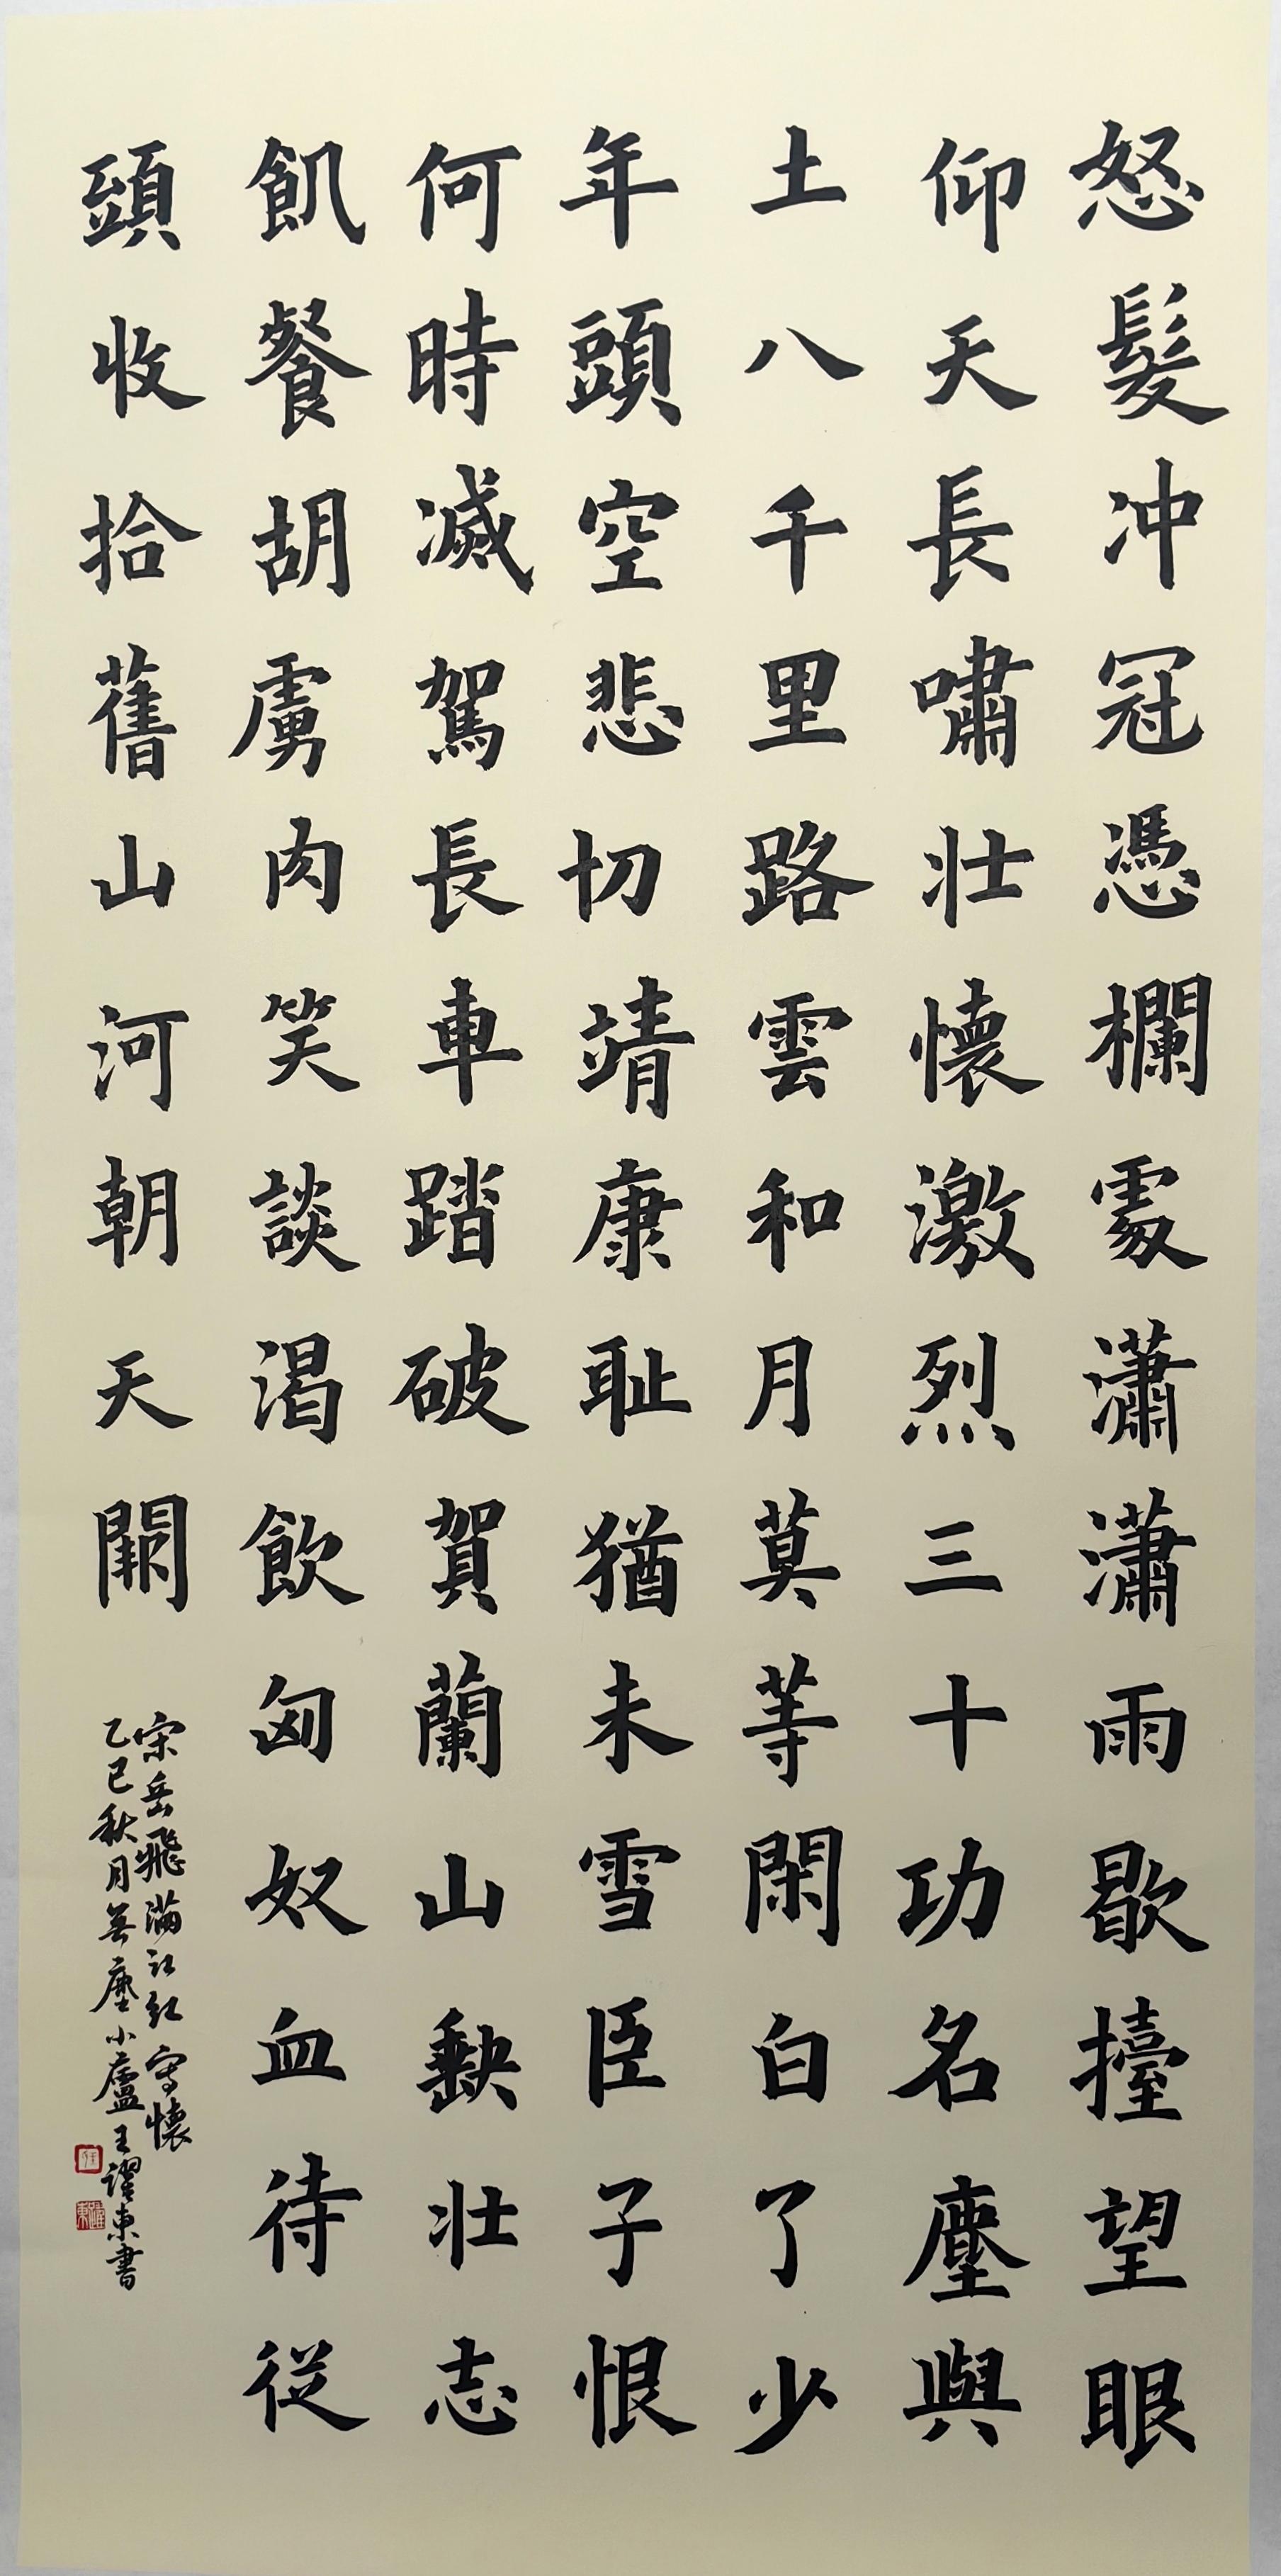 怒髮冲冠憑欄處瀟瀟雨歇擡望眼
仰天長嘯壯懷激烈三十功名塵與
土八千里路雲和月莫等閑白了少
年頭空悲切靖康耻猶未雪臣子恨
何時滅駕長車踏破賀蘭山缺壯志
飢餐胡虜肉笑談渴飲匈奴血待從
頭收拾舊山河朝天闕
宋岳飛滿江紅寫懷
乙巳秋月無塵小廬王躍東書